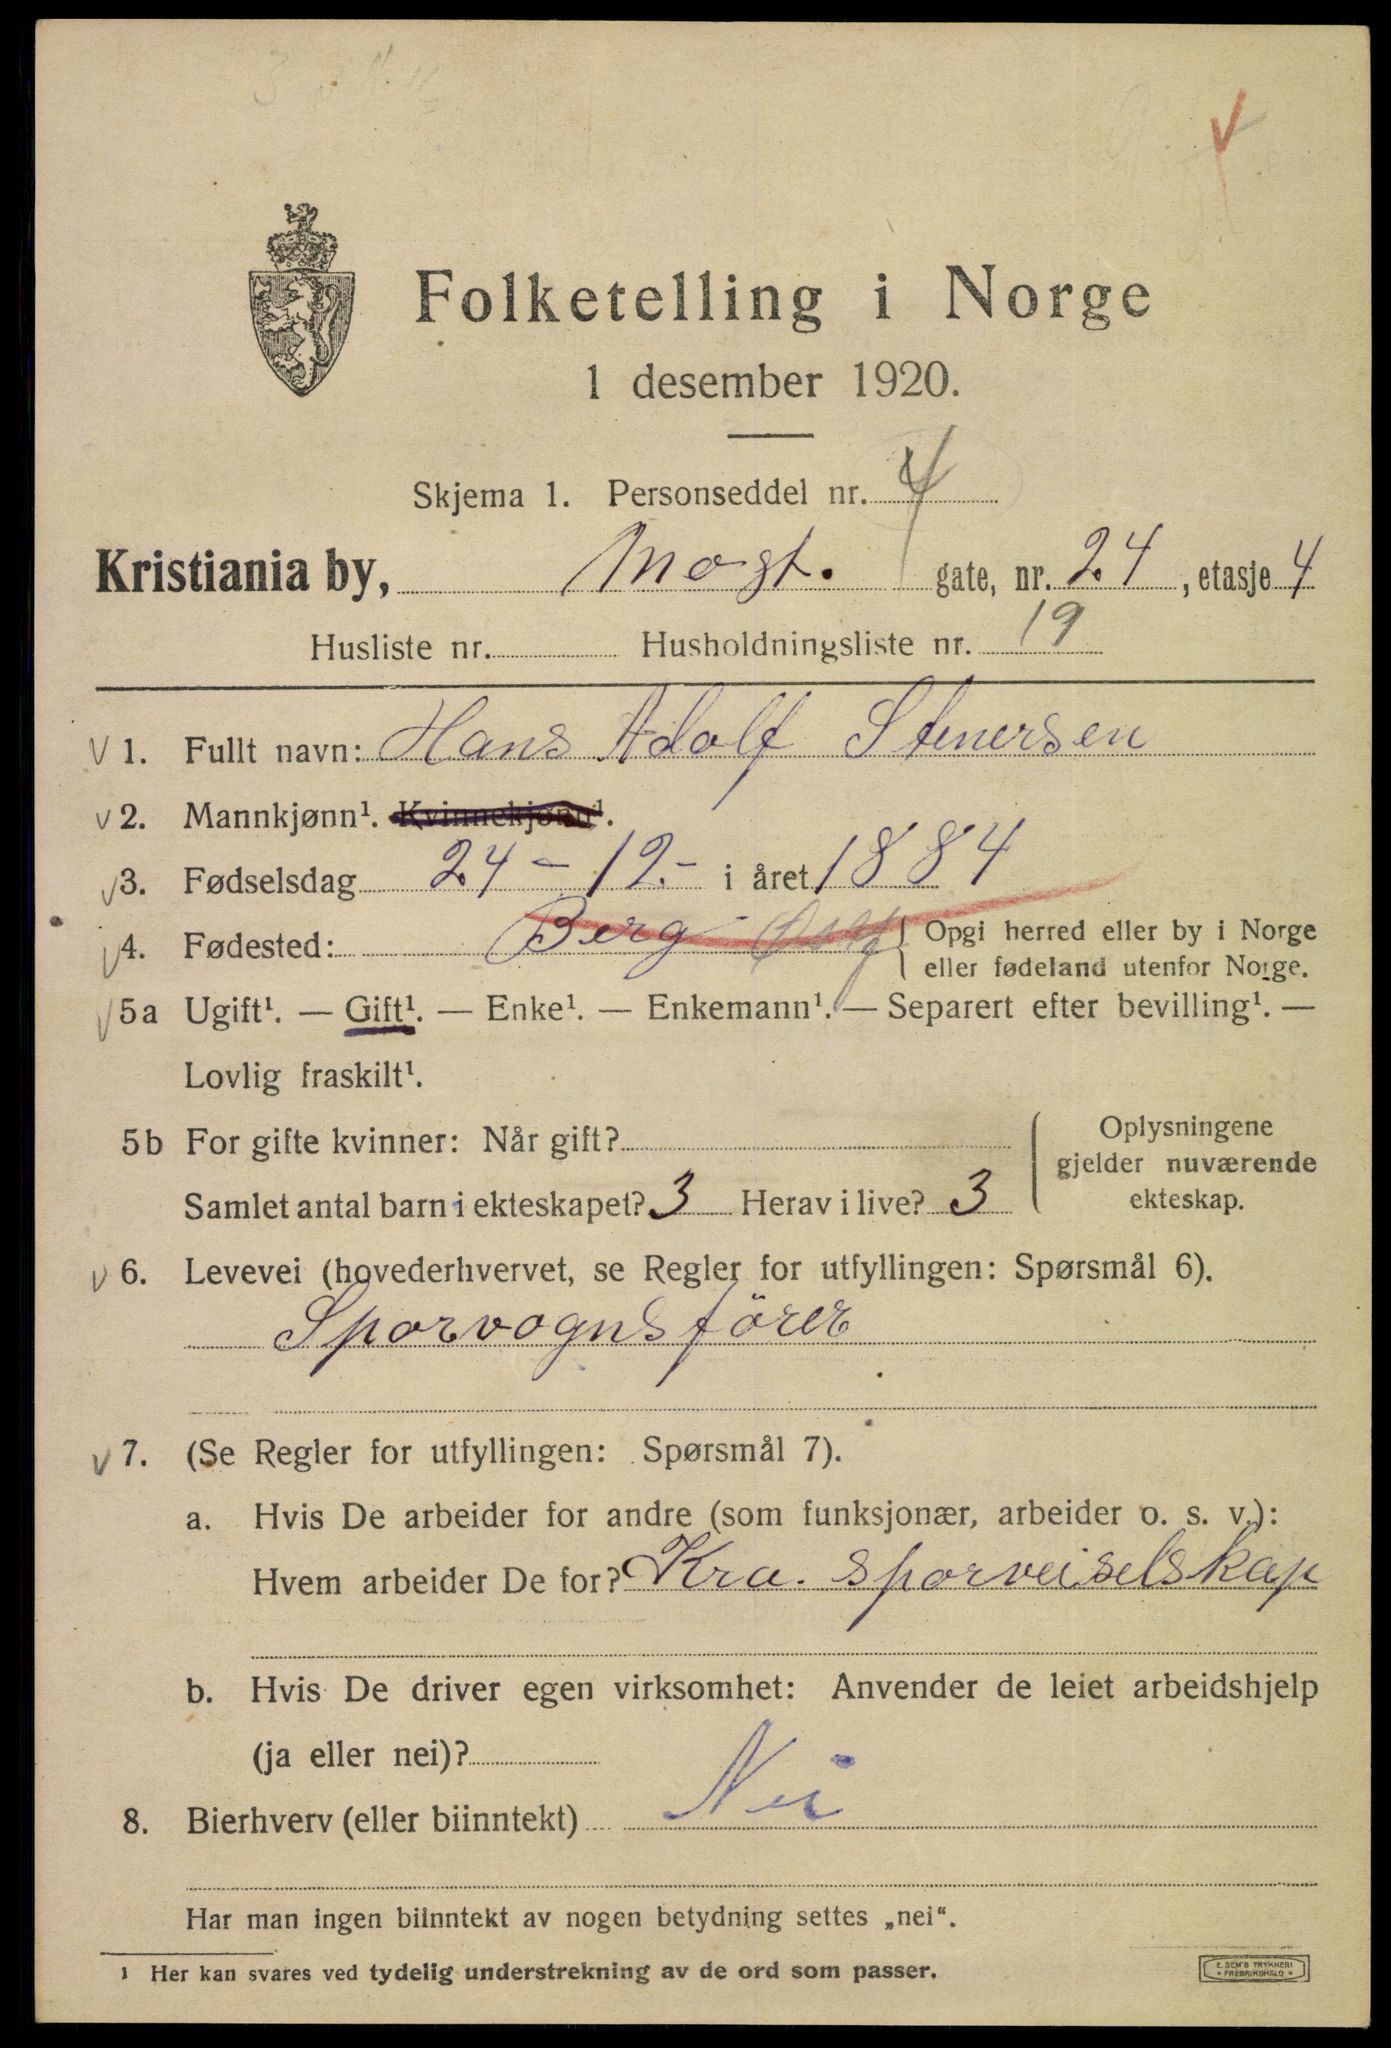 Folketelling i Norge
1 desember 1920.
Skjema 1. Personseddel nr. 4
Kristiania by, Mogt. gate, nr. 24, etasje 4
Husliste nr. Husholdningsliste nr. 19
1. Fullt navn: Hans Adolf Stenersen
2. Mannkjønn¹. Kvinnekjønn¹.
3. Fødselsdag 24 - 12. - i året 1884
4. Fødested: Berg Østf { Opgi herred eller by i Norge
eller fødeland utenfor Norge.
5a Ugift¹. — Gift¹. — Enke¹. — Enkemann¹. — Separert efter bevilling¹. —
Lovlig fraskilt¹.
5b For gifte kvinner: Når gift?
Samlet antal barn i ekteskapet? 3 Herav i live? 3
Oplysningene
gjelder nuværende
ekteskap.
6. Levevei (hovederhvervet, se Regler for utfyllingen: Spørsmål 6).
Sporvognsförer
7. (Se Regler for utfyllingen: Spørsmål 7).
a. Hvis De arbeider for andre (som funksjonær, arbeider o. s. v.):
Hvem arbeider De for? Kra. sporveiselskap
b. Hvis De driver egen virksomhet: Anvender de leiet arbeidshjelp
(ja eller nei)?
8. Bierhverv (eller biinntekt) Nei
Har man ingen biinntekt av nogen betydning settes „nei“.
¹ Her kan svares ved tydelig understrekning av de ord som passer.
E. SEM'S TRYKKERI
FREDRIKSHALD